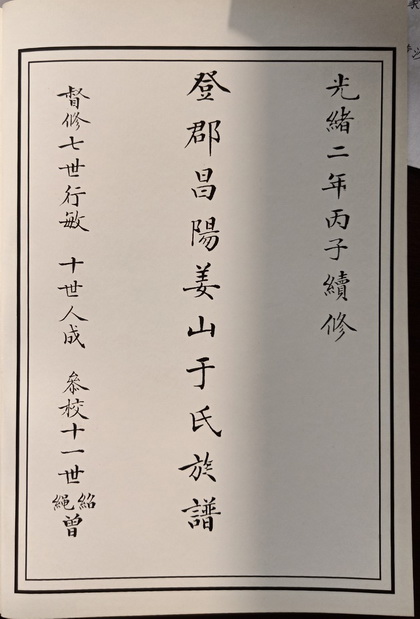 光緒二年丙子續修
登郡昌陽姜山于氏族譜
督修七世行敏 十世人成 參校十一世紹繩曾